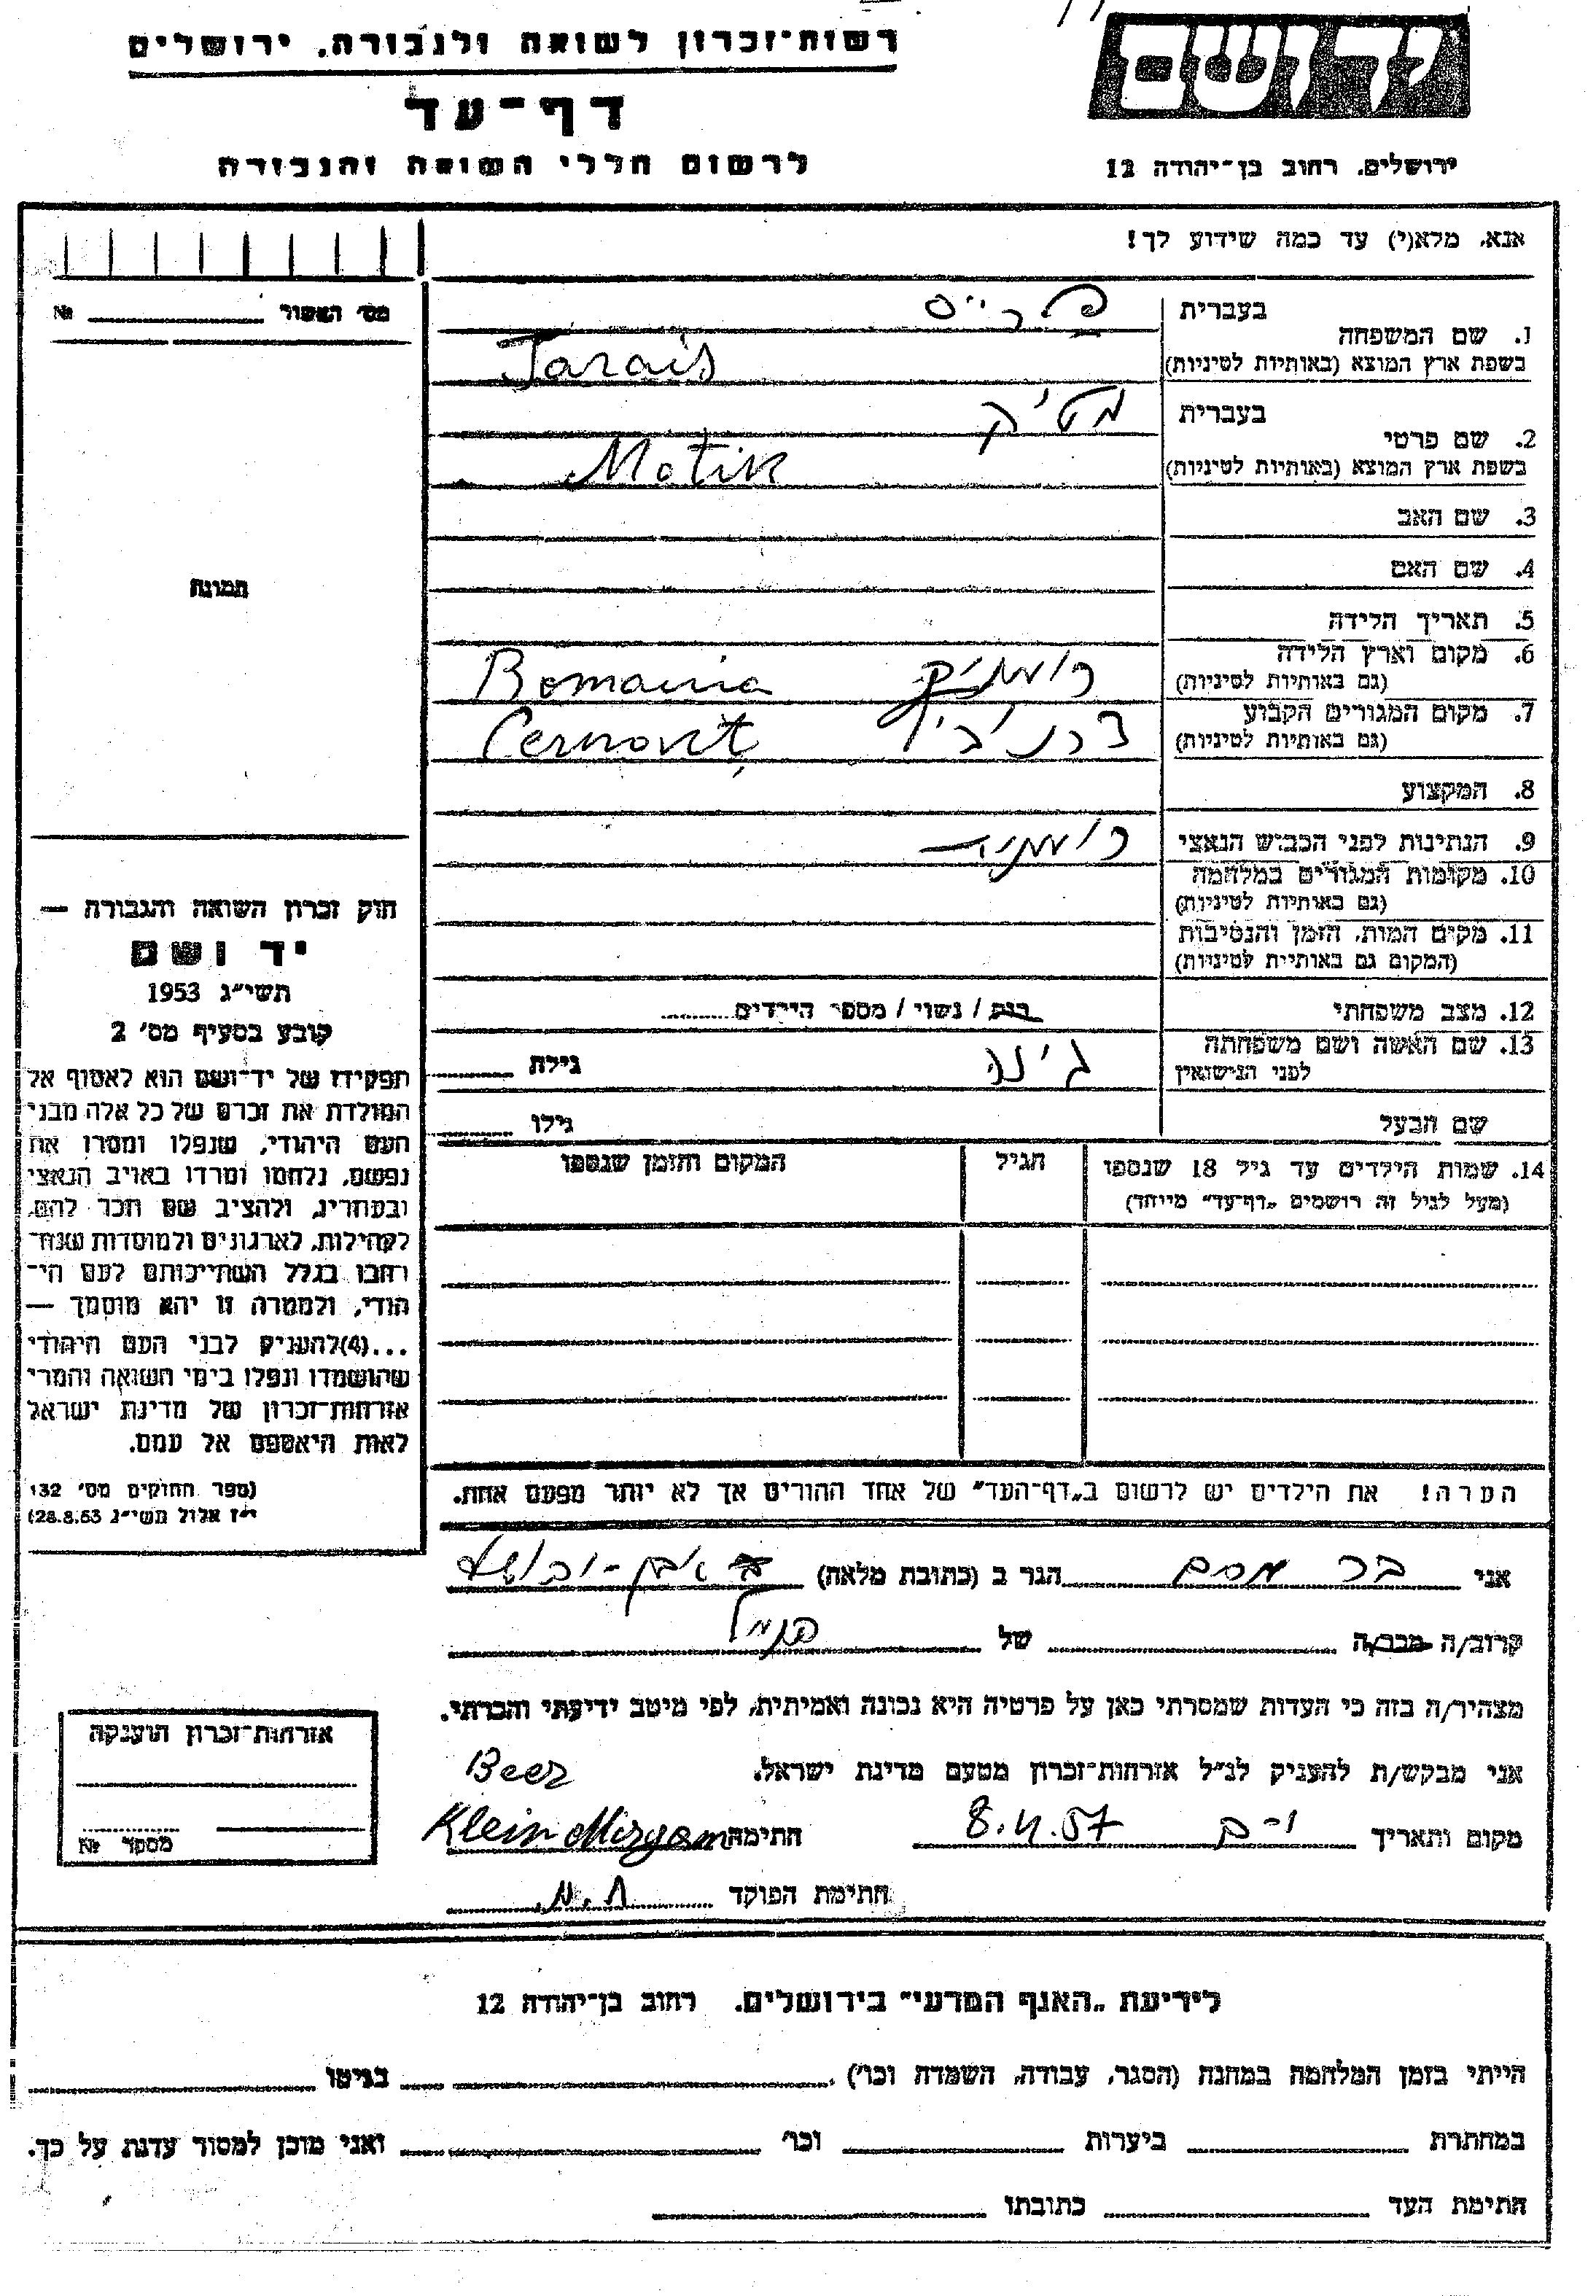 רשות-זכרון לשואה ולגבורה, ירושלים
דף-עד
לרשום חללי השואה והגבורה
יד ושם
ירושלים, רחוב בן-יהודה 12
אנא, מלא(י) עד כמה שידוע לך!
מס' האשור № 
1. שם המשפחה
בעברית
בשפת ארץ המוצא (באותיות לטיניות) Tarais
2. שם פרטי
בעברית מטיק
בשפת ארץ המוצא (באותיות לטיניות) Motik
3. שם האב
4. שם האם
5. תאריך הלידה
6. מקום וארץ הלידה
(גם באותיות לטיניות) רומניה Romania
7. מקום המגורים הקבוע
(גם באותיות לטיניות) צרנוביץ Cernoviț
8. המקצוע
9. הנתינות לפני הכבוש הנאצי רומניה
10. מקומות המגורים במלחמה
(גם באותיות לטיניות)
11. מקום המות, הזמן והנסיבות
(המקום גם באותיות לטיניות)
12. מצב משפחתי רווק / נשוי / מספר הילדים
13. שם האשה ושם משפחתה
לפני הנישואין ג'ינה גילה
שם הבעל גילו
14. שמות הילדים עד גיל 18 שנספו
(מעל לגיל זה רושמים „דף-עד" מיוחד)
הגיל
המקום והזמן שנספו
הערה! את הילדים יש לרשום ב„דף-העד" של אחד ההורים אך לא יותר מפעם אחת.
תמונה
חוק זכרון השואה והגבורה —
יד ושם
תשי"ג 1953
קובע בסעיף מס' 2
תפקידו של יד-ושם הוא לאסוף אל
המולדת את זכרם של כל אלה מבני
העם היהודי, שנפלו ומסרו את
נפשם, נלחמו ומרדו באויב הנאצי
ובעוזריו, ולהציב שם וזכר להם,
לקהילות, לארגונים ולמוסדות שנח-
רבו בגלל השתייכותם לעם הי-
הודי, ולמטרה זו יהא מוסמך —
...(4)להעניק לבני העם היהודי
שהושמדו ונפלו בימי השואה והמרי
אזרחות-זכרון של מדינת ישראל
לאות היאספם אל עמם.
(ספר החוקים מס' 132
י"ז אלול תשי"ג 28.8.53)
אני בר הגר ב (כתובת מלאה) אבן-
קרוב/ה מכר/ה של
מצהיר/ה בזה כי העדות שמסרתי כאן על פרטיה היא נכונה ואמיתית, לפי מיטב ידיעתי והכרתי.
אני מבקש/ת להעניק לנ"ל אזרחות-זכרון מטעם מדינת ישראל. Beer
מקום ותאריך י-ם 8.4.57 חתימה Klein Miryam
חתימת הפוקד
אזרחות-זכרון הוענקה
מספר №
לידיעת „האגף המדעי" בירושלים, רחוב בן-יהודה 12
הייתי בזמן המלחמה במחנה (הסגר, עבודה, השמדה וכו') בגיטו
במחתרת ביערות וכו' ואני מוכן למסור עדות על כך.
חתימת העד כתובתו